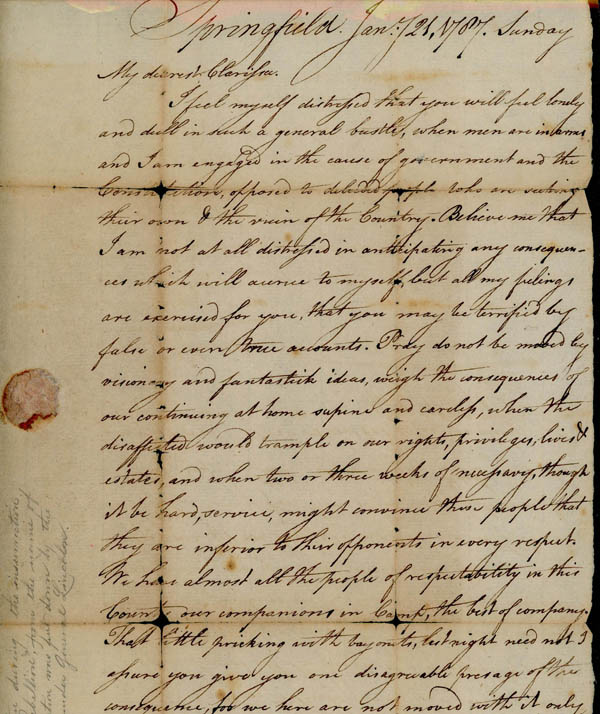 Springfield. Jany. 21, 1787. Sunday
My dearest Clarissa.
I feel myself distressed that you will feel lonely
and dull in such a general bustle, when men are in arms
and I am engaged in the cause of government and the
Constitution, opposed to deluded people who are seeking
their own & the ruin of the Country. Believe me that
I am not at all distressed in anticipating any consequen-
ces which will accrue to myself, but all my feelings
are exercised for you, that you may be terrified by
false or even true accounts. Pray do not be moved by
visionary and fantastick ideas, weigh the consequences of
our continuing at home supine and careless, when the
disaffected would trample on our rights, privileges, lives &
estates, and when two or three weeks of necessary, though
it be hard, service, might convince these people that
they are inferior to their opponents in every respect.
We have almost all the people of respectability in this
County our companions in Camp, the best of company.
That little pricking with bayonets, last night need not I
assure you give you one disagreeable presage of the
consequence, for we here are not moved with it only
during the insurrection
from the name of
was put down by the
under General Lincoln.